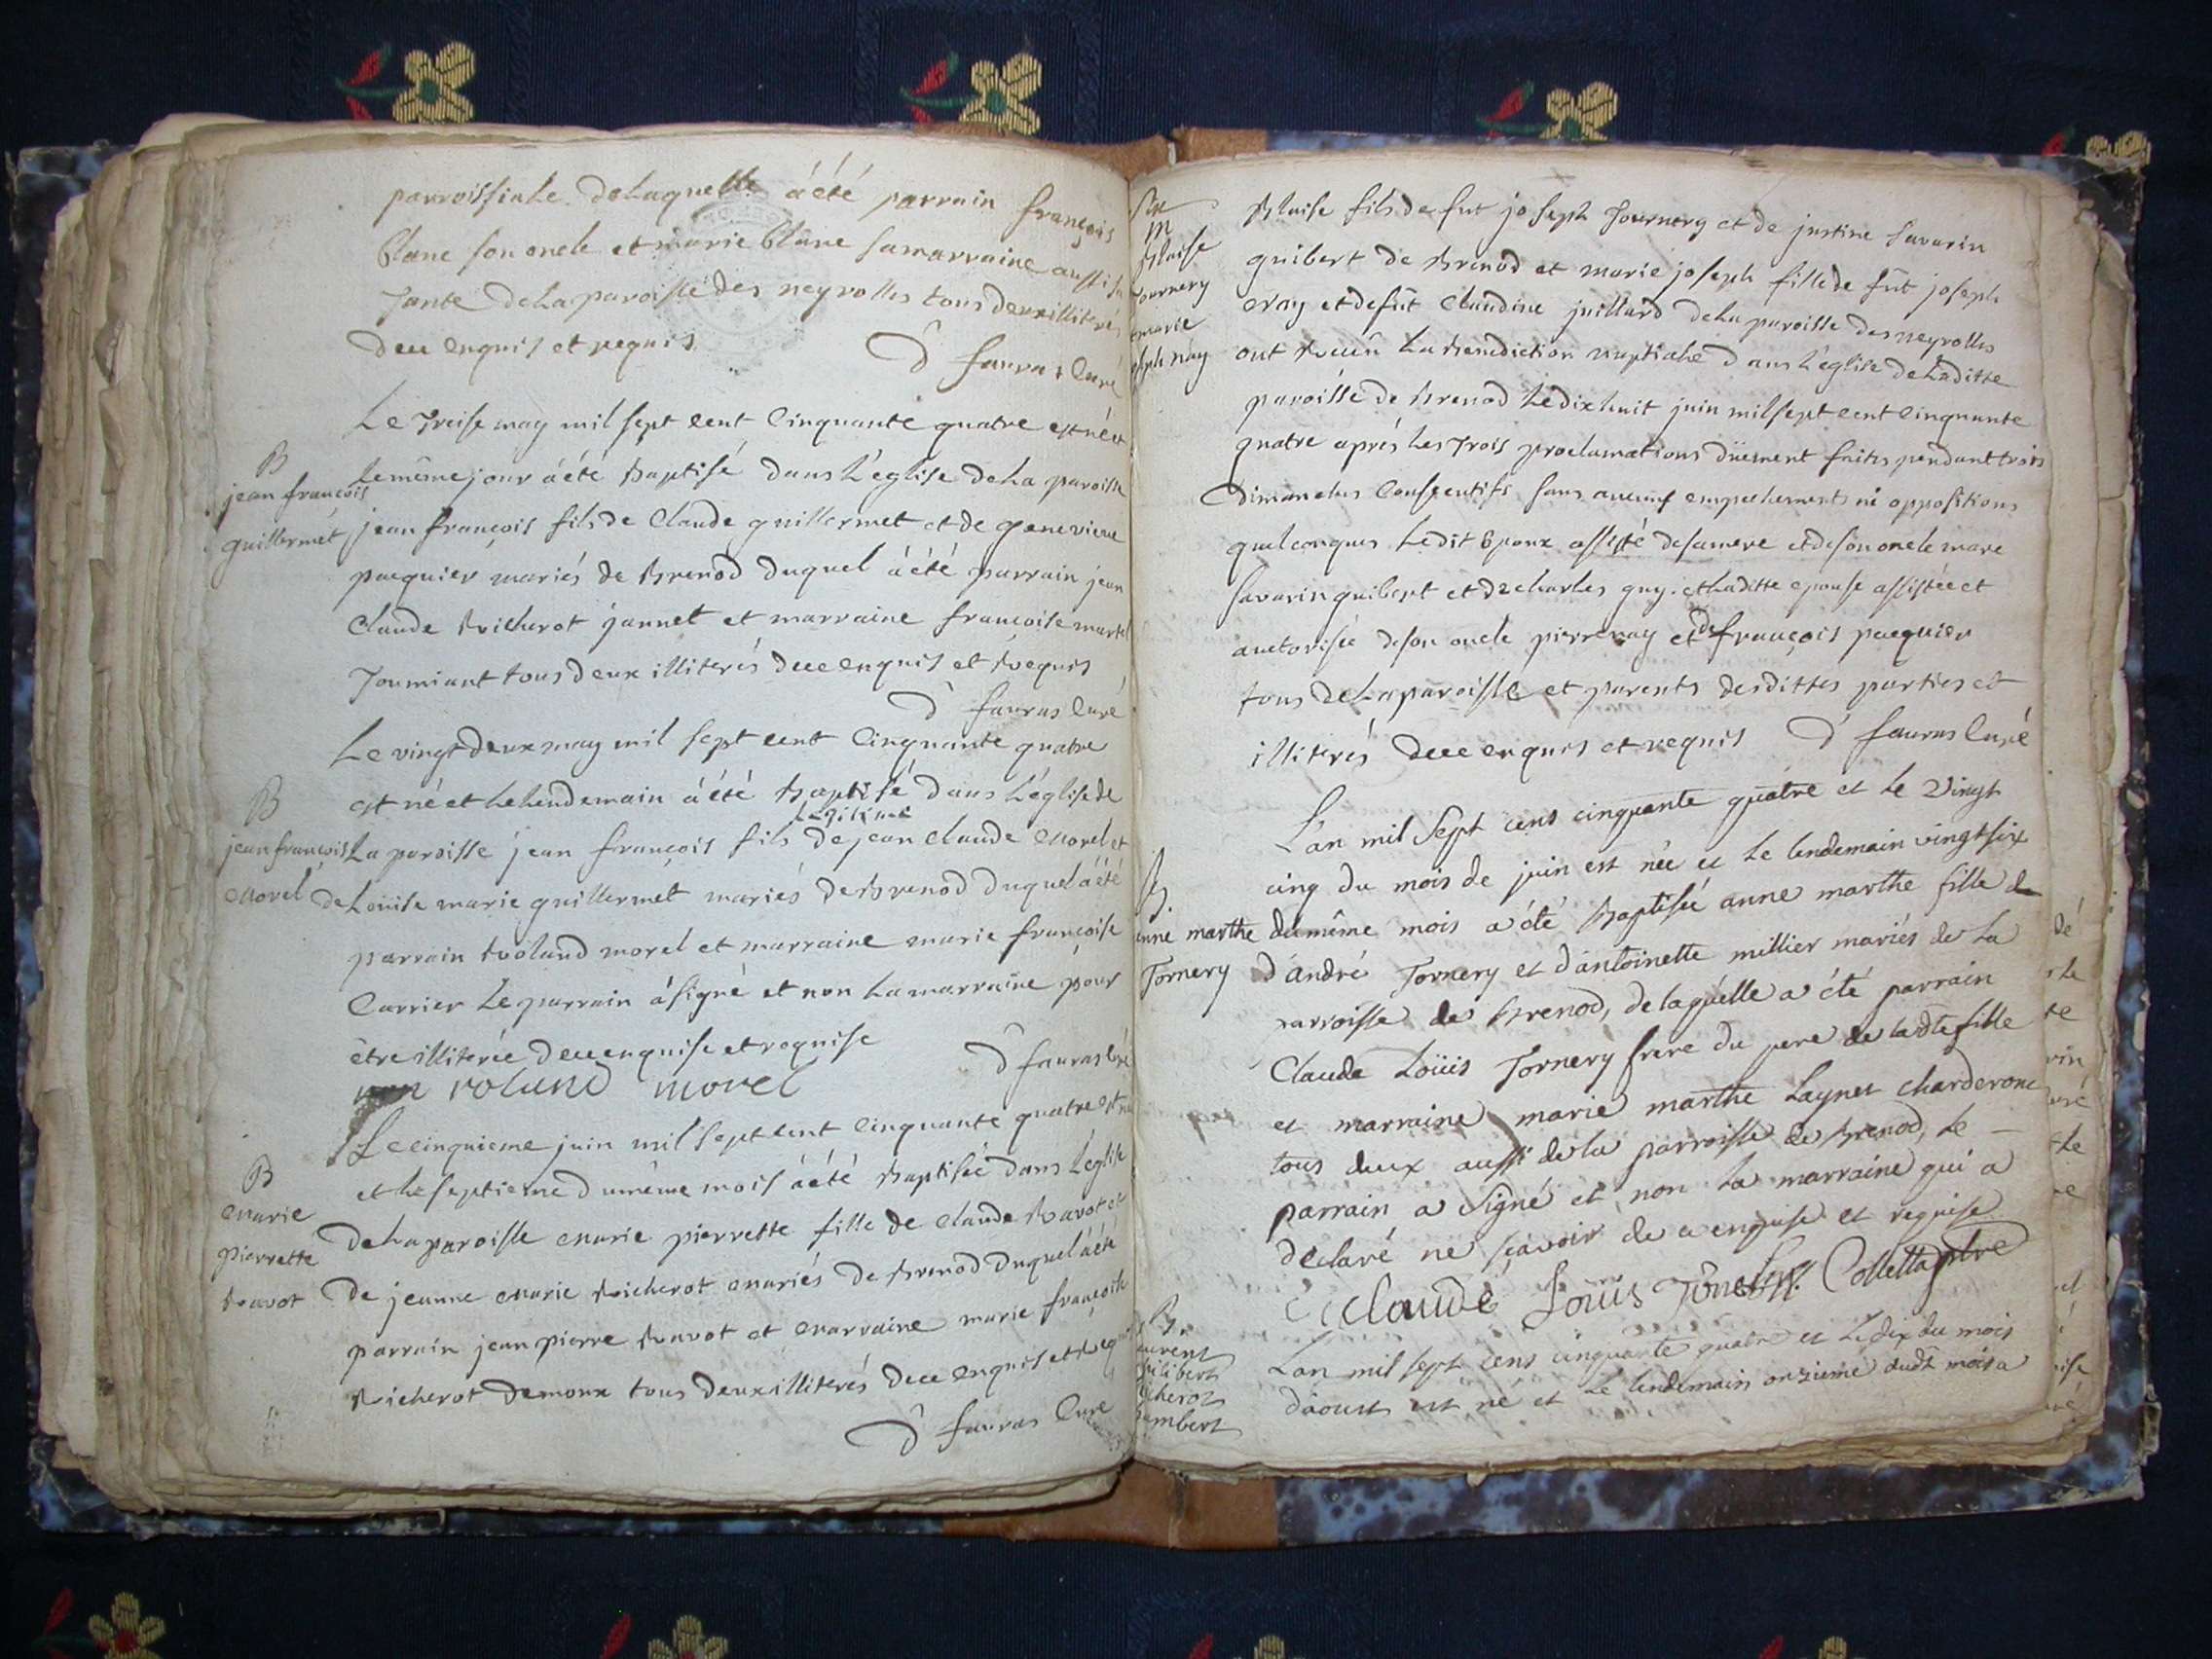 parroissiale. de laquelle à été parrain françois
blanc son oncle et marie blanc sa marraine aussi sa
tante de la paroisse des neyrolles tous deux illiterés
de ce enquis et requis
D fauras Curé
Le treise may mil sept cent Cinquante quatre est né et
B
jean françois
guillermet
le même jour à été baptisé dans L'église de La paroisse
jean françois fils de Claude guillermet et de genevieve
pacquier mariés de brenod duquel à été parrain jean
Claude richerot jannet et marraine françoise martel
tous deux illiterés de ce enquis et requis
D fauras Curé
Le vingt deux may mil sept cent Cinquante quatre
B
jean françois
morel
est né et le lendemain à été baptisé dans L'église de
Legitime
La paroisse jean françois fils de jean claude morel et
de Loüise marie guillermet mariés de brenod duquel à été
parrain roland morel et marraine marie françoise
Carrier Le parrain à signé et non La marraine pour
être illiterée de ce enquise et requise
D fauras Curé
roland morel
Le cinquieme juin mil sept cent Cinquante quatre est née
B
marie
pierrette
ravot
et le septieme du même mois à été baptisée dans L'eglise
de La paroisse marie pierrette fille de claude Ravot et
de jeanne marie richerot mariés de brenod duquel à été
parrain jean pierre Ravot et marraine marie françoise
richerot demoux tous deux illiterés de ce enquis et requis
D fauras Curé
M
blaise
tournery
marie
joseph nay
Blaise fils de fut joseph Tournery et de justine savarin
guibert de brenod et marie joseph fille de fut joseph
nay et de fut Claudine juillard de La paroisse des neyrolles
ont receu La benediction nuptiale dans L'église de Laditte
paroisse de brenod Le dix huit juin mil sept cent cinquante
quatre aprés Les trois proclamations düement faites pendant trois
dimanches Consecutifs sans aucuns empechements ni oppositions
quelconques Ledit Epoux assisté de sa mere et de son oncle marc
savarin guibert et de charles guy. et Laditte epouse assistée et
auctorisée de son oncle pierre nay et de françois pacquier
tous de La paroisse et parents desdittes parties et
illiterés de ce enquis et requis D fauras Curé
L'an mil sept cens cinquante quatre et le vingt
B.
anne marthe
Tornery
cinq du mois de juin est née et le lendemain vingt six
du même mois a été baptisée anne marthe fille de
d'andré Tornery et d'antoinette millier mariés de la
parroisse de brenod, de laquelle a été parrain
Claude Loüis Tornery frere du pere de ladte fille
et marraine marie marthe Laynet charderone
tous deux aussi de la parroisse de brenod, le
parrain a signé et non la marraine qui a
déclaré ne sçavoir de ce enquise et requise
Claude Loüis Colletta ptre
B.
Laurent
philibert
richerot
humbert
L'an mil sept cens cinquante quatre et le dix du mois
d'aoust est né et le lendemain onzieme dudt mois a